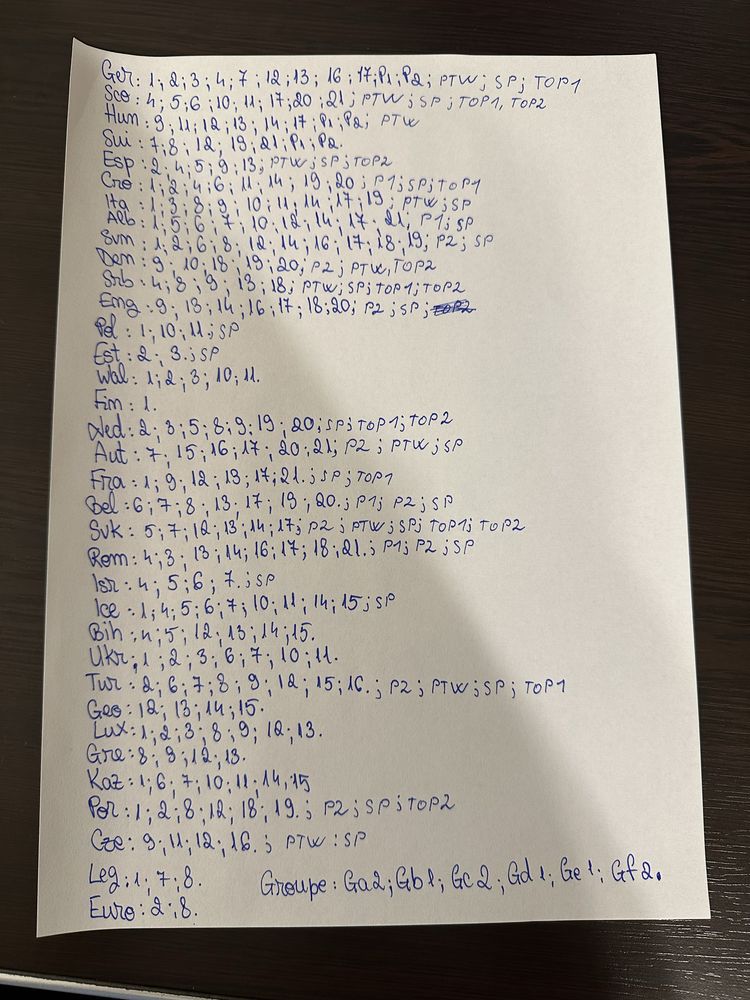 Ger: 1; 2; 3; 4; 7; 12; 13; 16; 17; P1; P2; PTW; SP; TOP1
Sco: 4; 5; 6; 10; 11; 17; 20; 21; PTW; SP; TOP1, TOP2
Hun: 9; 11; 12; 13; 14; 17; P1; P2; PTW
Sui: 7; 8; 12; 19; 21; P1; P2.
Esp: 2; 4; 5; 9; 13; PTW; SP; TOP2
Cro: 1; 2; 4; 6; 11; 14; 19; 20; P1; SP; TOP1
Ita: 1; 3; 8; 9; 10; 11; 14; 17; 19; PTW; SP
Alb: 1; 5; 6; 7; 10; 12; 14; 17. 21; P1; SP
Svn: 1; 2; 6; 8; 12; 14; 16; 17; 18; 19; P2; SP
Den: 9; 10; 18; 19; 20; P2; PTW, TOP2
Srb: 4; 8; 9; 13; 18; PTW; SP; TOP1; TOP2
Eng: 9; 13; 14; 16; 17; 18; 20; P2; SP;
Pol: 1; 10; 11; SP
Est: 2; 3.; SP
Wal: 1; 2; 3; 10; 11.
Fin: 1.
Ned: 2; 3; 5; 8; 9; 19; 20; SP; TOP1; TOP2
Aut: 7; 15; 16; 17; 20; 21; P2; PTW; SP
Fra: 1; 9; 12; 13; 17; 21.; SP; TOP1
Bel: 6; 7; 8; 13; 17; 19; 20.; P1; P2; SP
Svk: 5; 7; 12; 13; 14; 17; P2; PTW; SP; TOP1; TOP2
Rom: 4; 3; 13; 14; 16; 17; 18; 21.; P1; P2; SP
Isr: 4; 5; 6; 7.; SP
Ice: 1; 4; 5; 6; 7; 10; 11; 14; 15; SP
Bih: 4; 5; 12; 13; 14; 15.
Ukr: 1; 2; 3; 6; 7; 10; 11.
Tur: 2; 6; 7; 8; 9; 12; 15; 16.; P2; PTW; SP; TOP1
Geo: 12; 13; 14; 15.
Lux: 1; 2; 3; 8; 9; 12; 13.
Gre: 8; 9; 12; 13.
Kaz: 1; 6; 7; 10; 11; 14, 15
Por: 1; 2; 8; 12; 18; 19.; P2; SP; TOP2
Cze: 9; 11; 12; 16.; PTW: SP
Leg: 1; 7; 8. Groupe: Ga2; Gb1; Gc2; Gd1; Ge1; Gf2.
Euro: 2; 8.